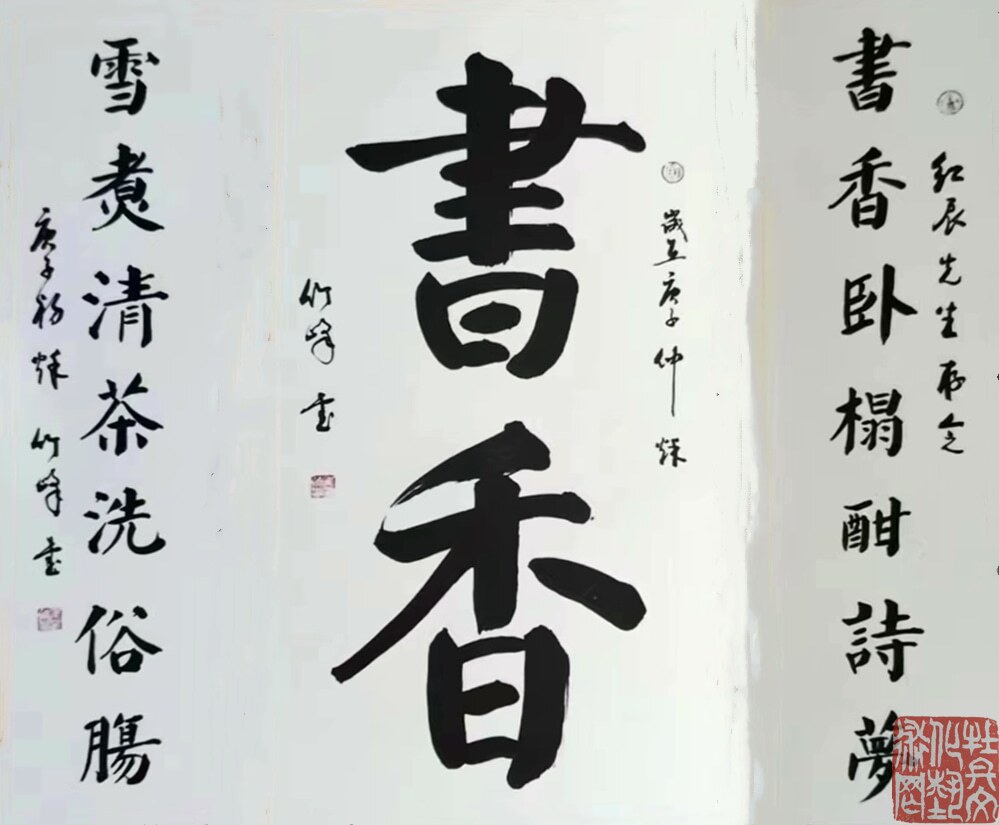 红辰先生存念
書香卧榻酣詩夢
歲在庚子仲秌
書香
竹峰書
雪煑清茶洗俗腸
庚子初秌 竹峰書